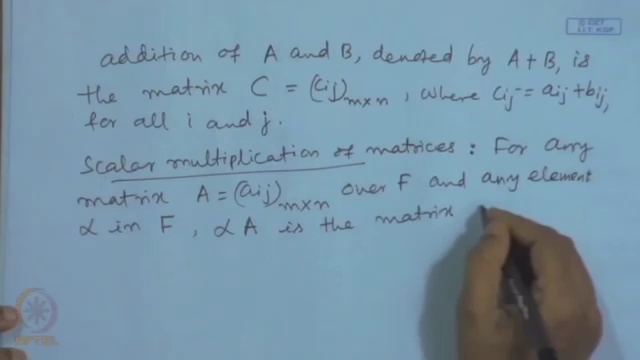 © CET
I.I.T. KGP
addition of A and B, denoted by A + B, is
the matrix C = (cij)m×n, where cij = aij + bij,
for all i and j.
Scalar multiplication of matrices : For any
matrix A = (aij)m×n over F and any element
α in F, α A is the matrix
NPTEL